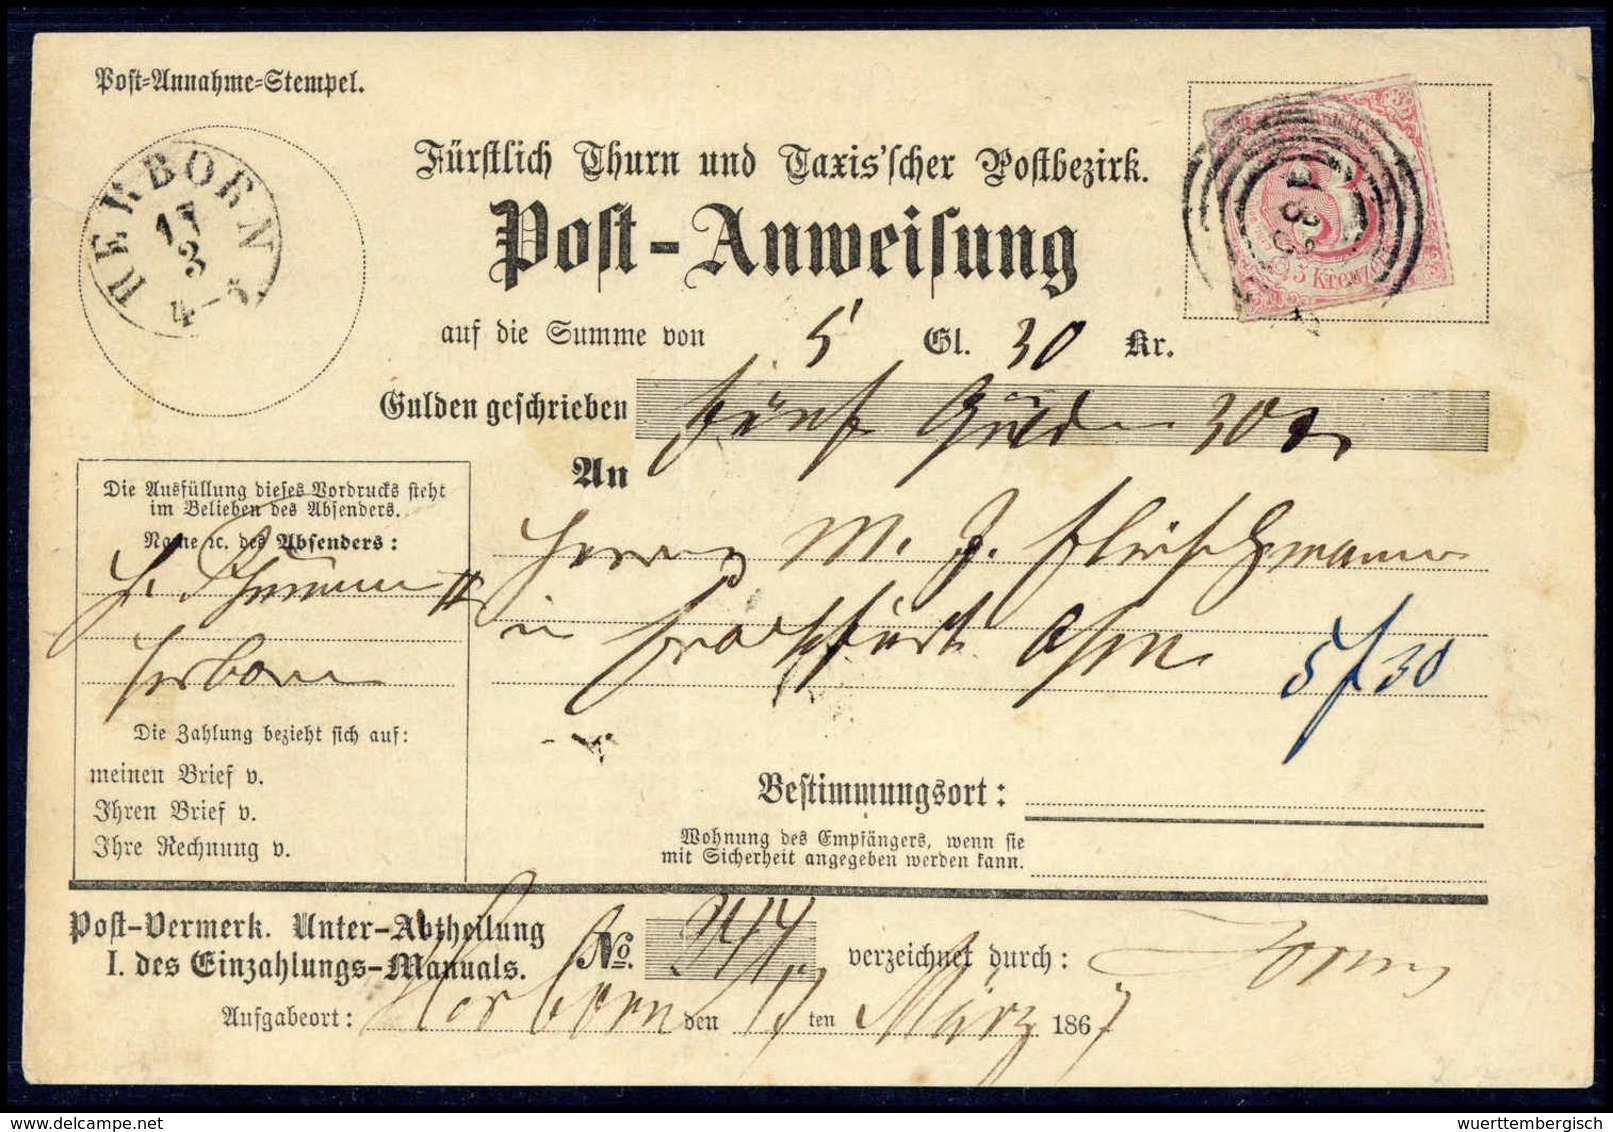 Post-Annahme-Stempel.
HERBORN
17
3
4-5
Fürstlich Thurn und Taxis'scher Postbezirk.
3
3 Kreuzer
Post-Anweisung
auf die Summe von 5 Gl. 30 Kr.
Gulden geschrieben fünf Gulden 30
An
Herrn M. J. Fleischmann
in Frankfurt a/m
5 f 30
Die Ausfüllung dieses Vordrucks steht
im Belieben des Absenders.
Name ꝛc. des Absenders:
H.
Herborn
Die Zahlung bezieht sich auf:
meinen Brief v.
Ihren Brief v.
Ihre Rechnung v.
Bestimmungsort:
Wohnung des Empfängers, wenn sie
mit Sicherheit angegeben werden kann.
Post-Vermerk. Unter-Abtheilung
I. des Einzahlungs-Manuals.
No. 244 verzeichnet durch:
Aufgabeort: Herborn den 17 ten März 1867
wuerttembergisch